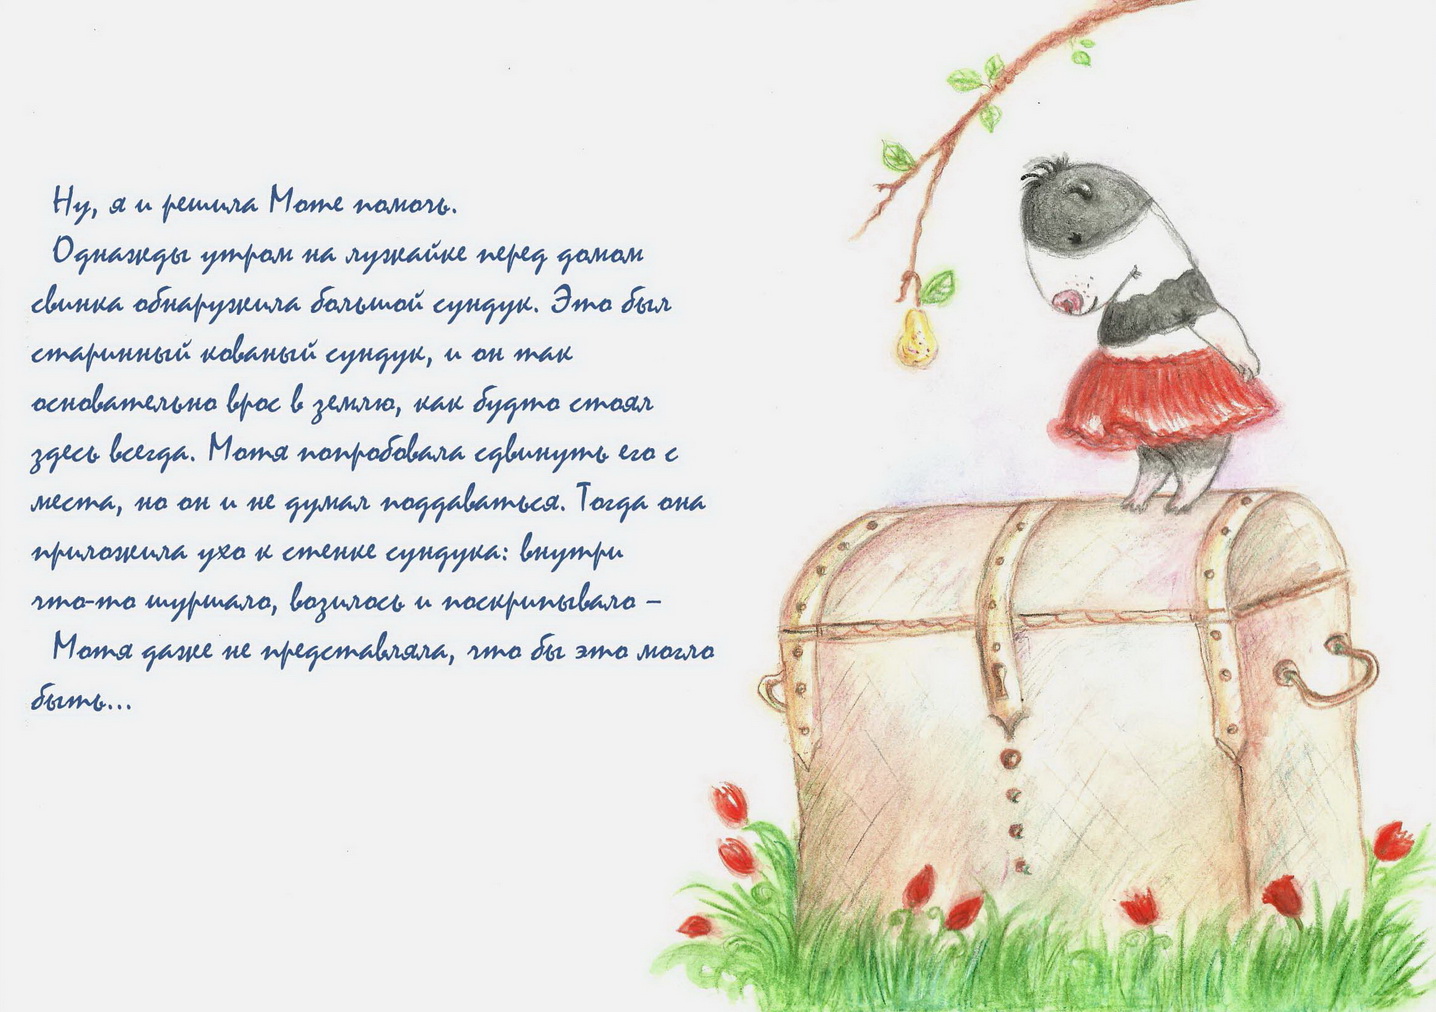 Ну, я и решила Моте помочь.
Однажды утром на лужайке перед домом
свинка обнаружила большой сундук. Это был
старинный кованый сундук, и он так
основательно врос в землю, как будто стоял
здесь всегда. Мотя попробовала сдвинуть его с
места, но он и не думал поддаваться. Тогда она
приложила ухо к стенке сундука: внутри
что-то шуршало, возилось и поскрипывало –
Мотя даже не представляла, что бы это могло
быть...